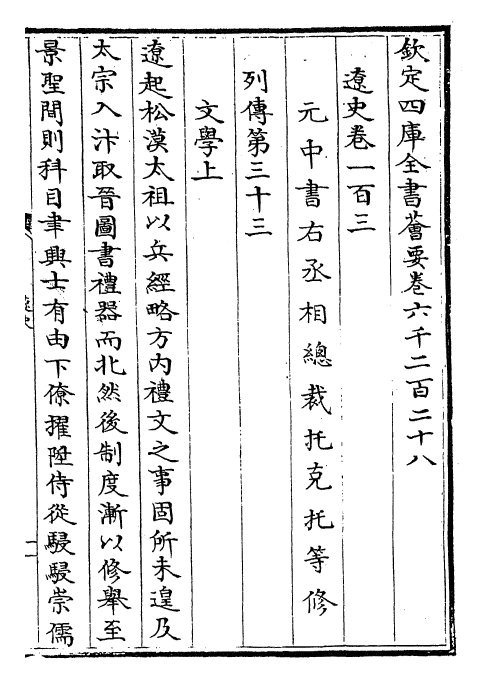 欽定四庫全書薈要卷六千二百二十八
遼史卷一百三
元中書右丞相總裁托克托等修
列傳第三十三
文學上
遼起松漠太祖以兵經略方内禮文之事固所未遑及
太宗入汴取晉圖書禮器而北然後制度漸以修舉至
景聖間則科目聿興士有由下僚擢陞侍從駸駸崇儒